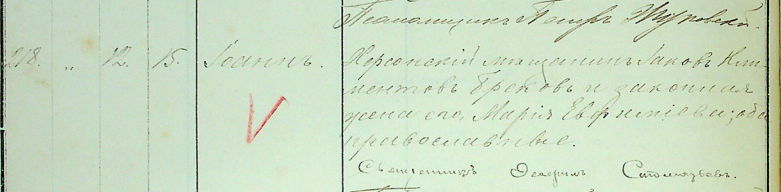 Псаломщикъ Петръ Жуковскій.
218. „ 12. 15. Іоаннъ. Херсонскій мѣщанинъ Іаковъ Кли-
ментовъ Грековъ и законная
жена его, Марія Евфиміева; оба
православные.
Священникъ Стом